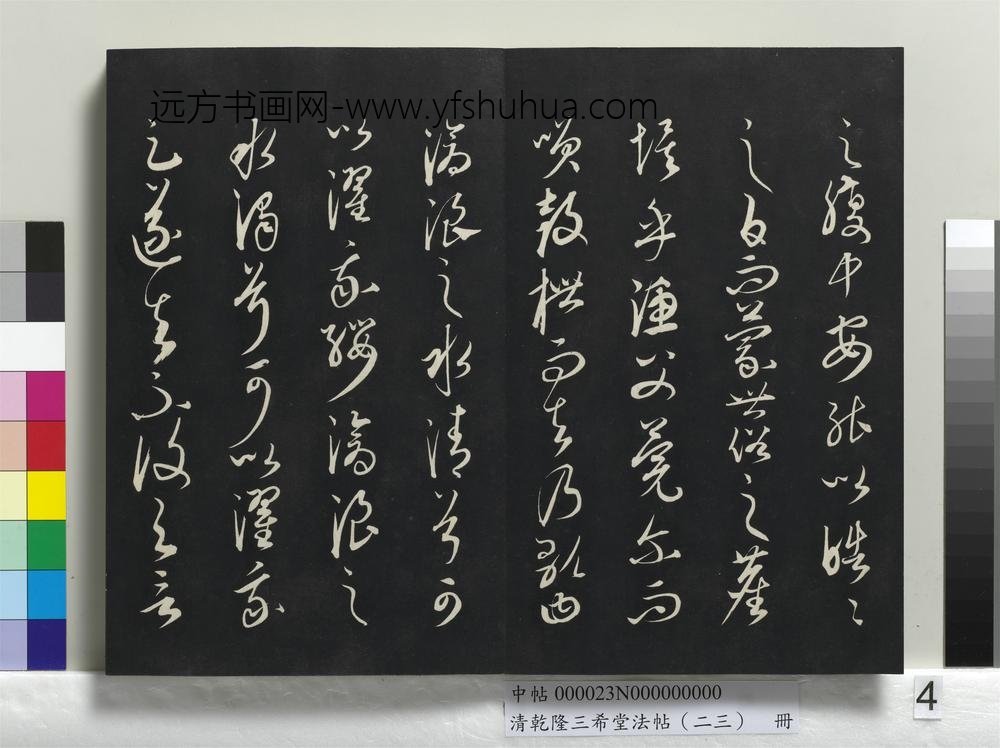 远方书画网-www.yfshuhua.com
之腹中安能以皓々
之白而蒙世俗之塵
埃乎漁父莞尔而
咲鼓枻而去乃歌曰
滄浪之水清兮可
以濯我纓滄浪之
水濁兮可以濯我
足遂去不復與言
中帖 000023N000000000
清乾隆三希堂法帖（二三） 冊
4